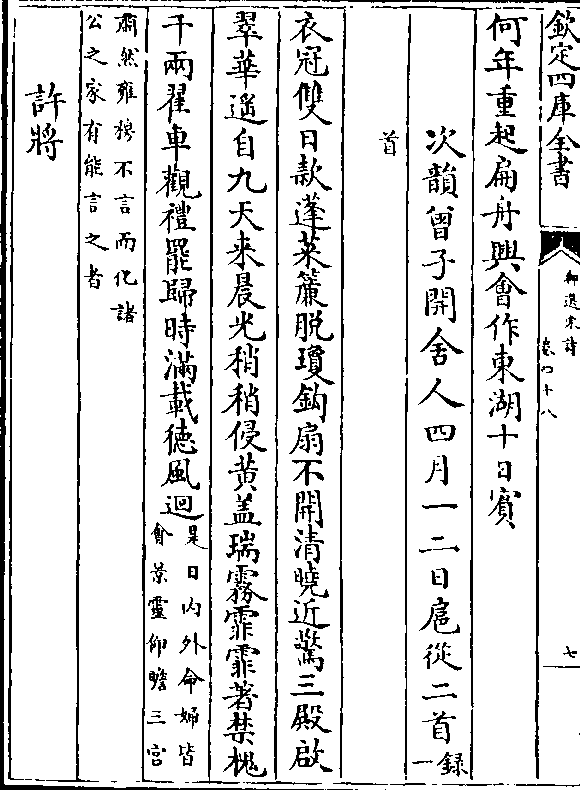 欽定四庫全書
御選宋詩
卷四十八
七
何年重起扁舟興會作東湖十日賓
次韻曾子開舍人四月一二日扈從二首錄一
首
衣冠雙日款蓬萊簾脱瓊鈎扇不開清曉近驚三殿啟
翠華遥自九天来晨光稍稍侵黄盖瑞霧霏霏著禁槐
千兩翟車觀禮罷歸時滿載徳風迴
是日内外命婦皆
會景靈仰瞻三宫
肅然雍穆不言而化諸
公之家有能言之者
許將